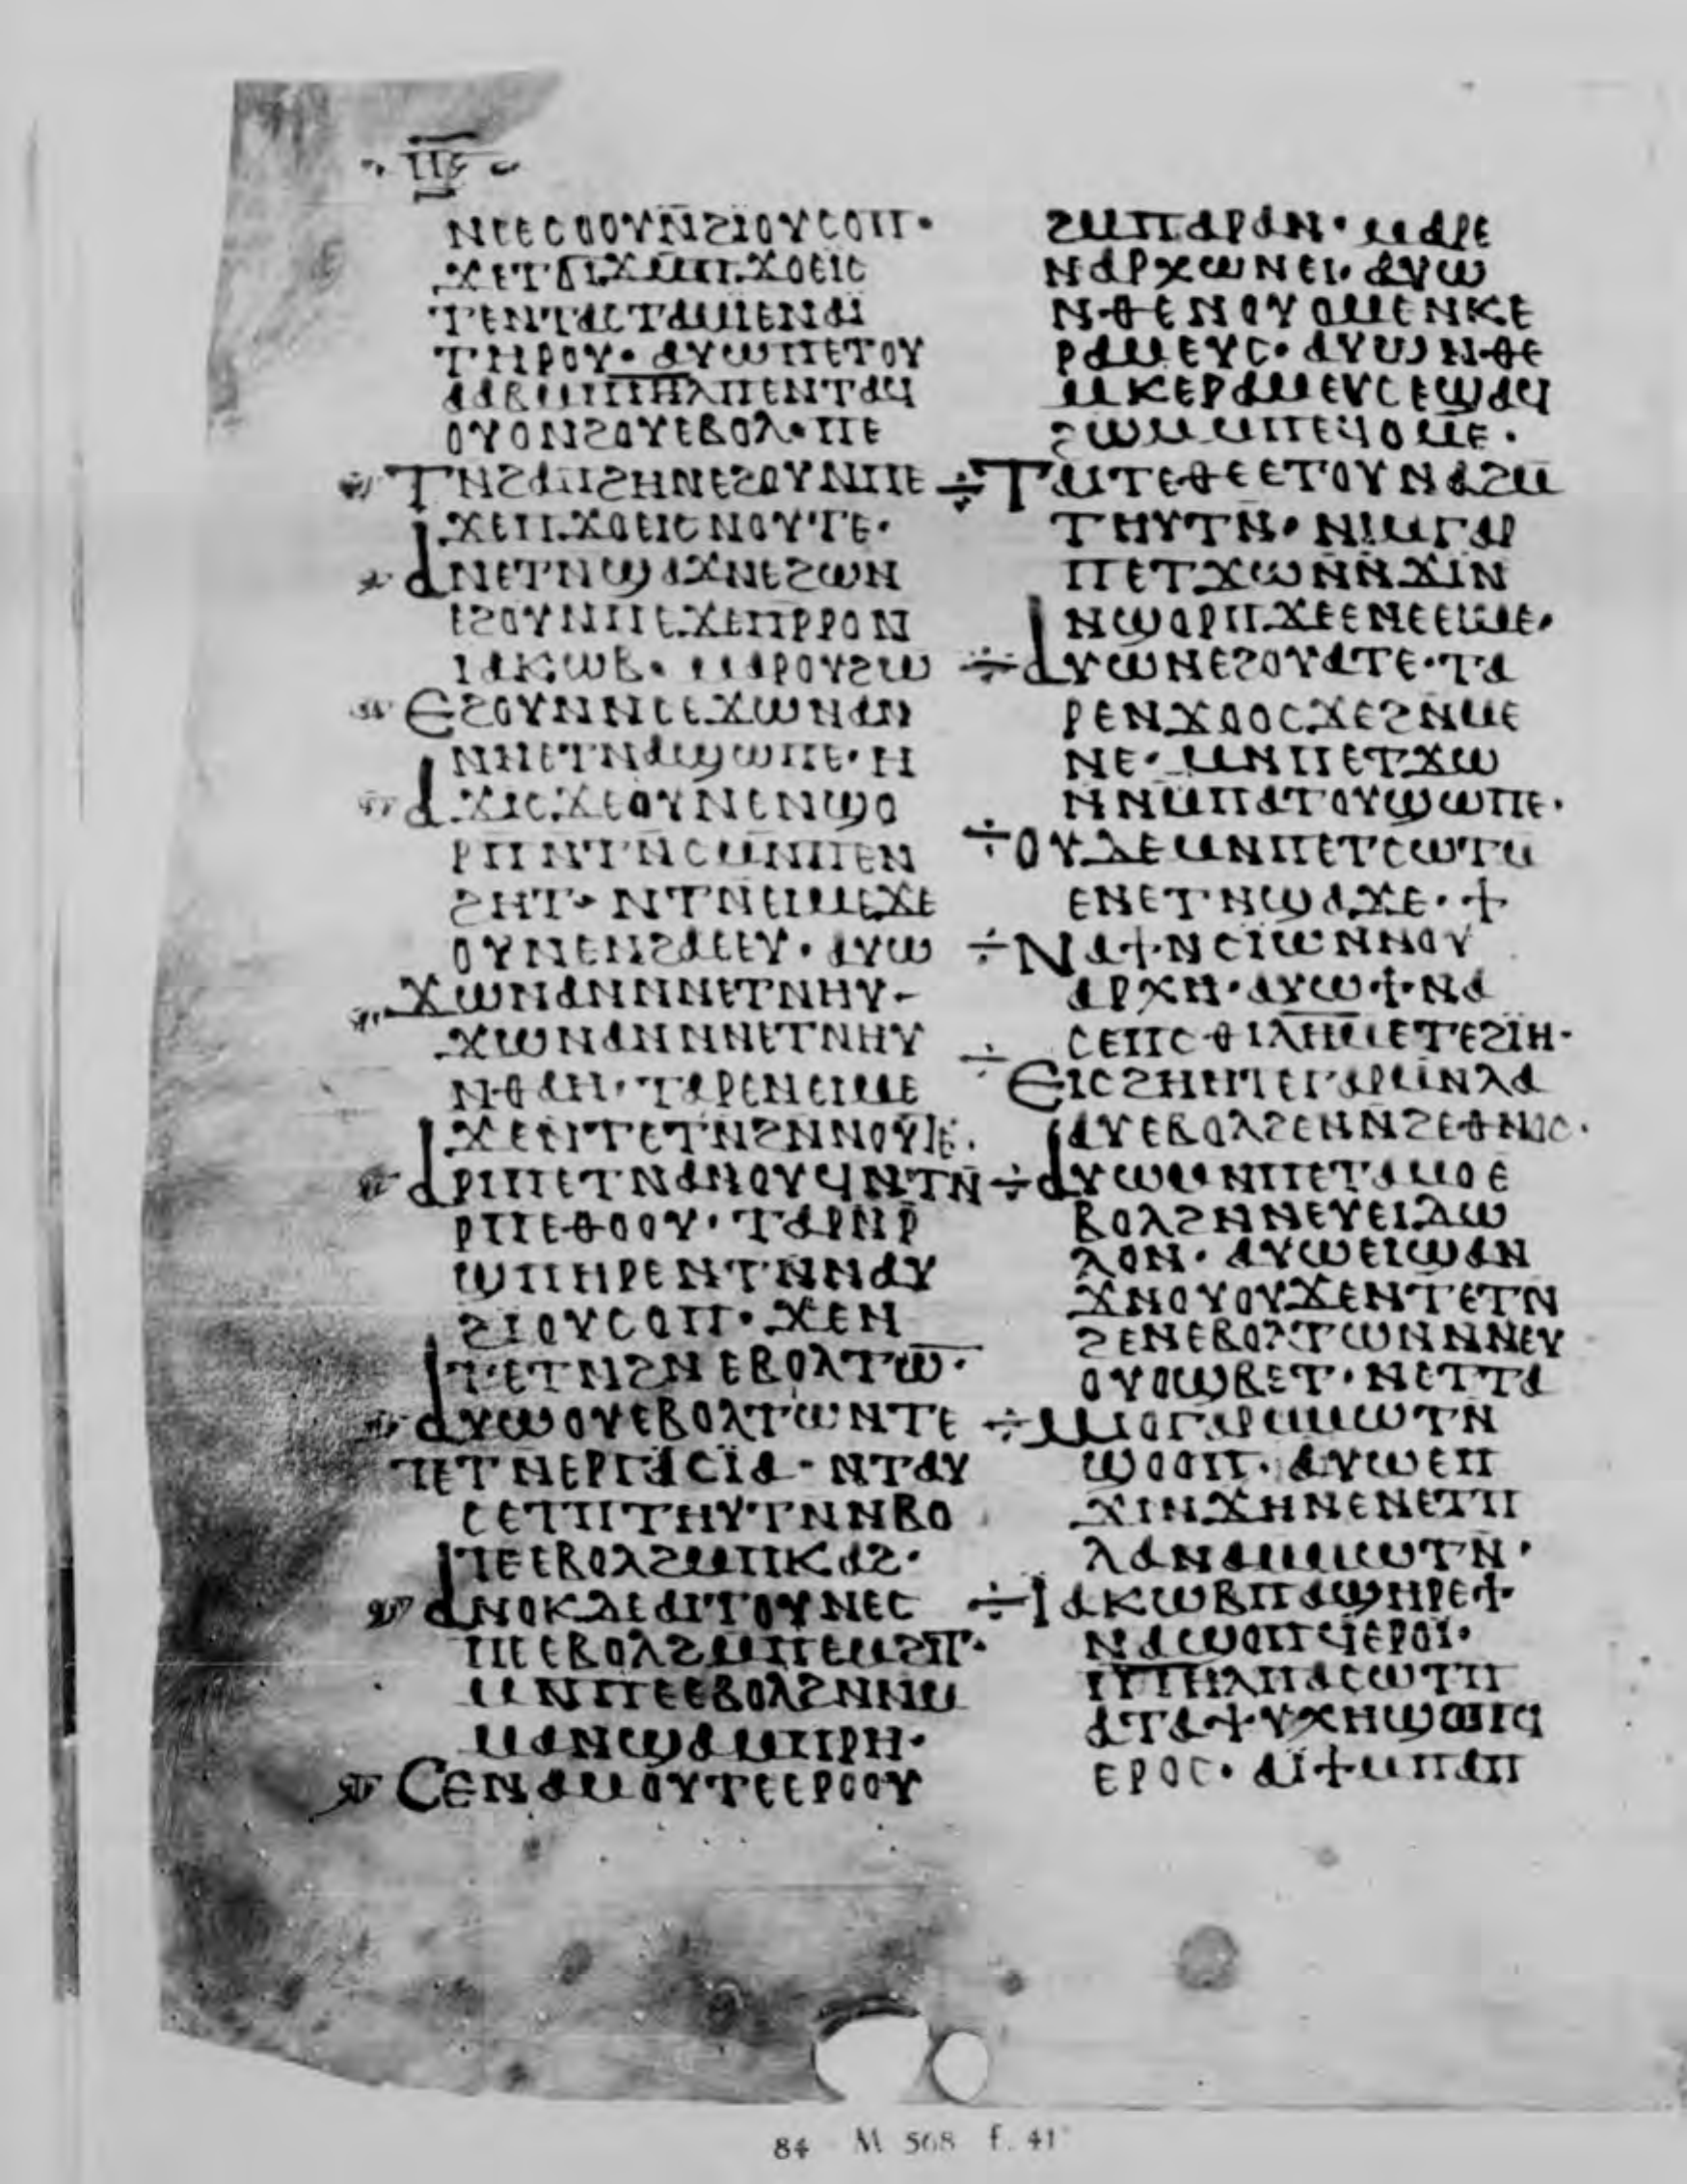 ⲠϚ
ⲚⲤⲈⲤⲞⲞⲨⲚϨⲒⲞⲨⲤⲞⲠ·
ϪⲈⲦϬⲒϪⲘⲠϪⲞⲈⲒⲤ
ⲦⲈⲚⲦⲀⲤⲦⲀⲘⲒⲈⲚⲀⲒ
ⲦⲎⲢⲞⲨ· ⲀⲨⲰⲠⲈⲦⲞⲨ
ⲀⲀⲂⲘⲠⲒⲎⲖⲠⲈⲚⲦⲀϤ
ⲞⲨⲞⲚϨⲞⲨⲈⲂⲞⲖ·ⲠⲈ
ⲦⲚϨⲀⲠϨⲎⲚⲈϨⲞⲨⲚⲠⲈ
ϪⲈⲠϪⲞⲈⲒⲤⲚⲞⲨⲦⲈ·
ⲀⲚⲈⲦⲚϢⲀϪⲚⲈϨⲰⲚ
ⲈϨⲞⲨⲚⲠⲈϪⲈⲠⲢⲢⲞⲚ
ⲒⲀⲔⲰⲂ· ⲘⲀⲢⲞⲨϨⲰ
ⲈϨⲞⲨⲚⲚⲤⲈϪⲰⲚⲀⲚ
ⲚⲚⲈⲦⲚⲀϢⲰⲠⲈ·Ⲏ
ⲀϪⲒⲤϪⲈⲞⲨⲚⲈⲚϢⲞ
ⲢⲠⲚⲦⲚⲤⲘⲚⲠⲈⲚ
ϨⲎⲦ· ⲚⲦⲚⲈⲒⲘⲈϪⲈ
ⲞⲨⲚⲈⲚϨⲀⲈⲈⲨ· ⲀⲨⲰ
ϪⲰⲚⲀⲚⲚⲚⲈⲦⲚⲎⲨ-
ϪⲰⲚⲀⲚⲚⲚⲈⲦⲚⲎⲨ
ⲚⲐⲀⲎ· ⲦⲀⲢⲈⲚⲈⲒⲘⲈ
ϪⲈⲚⲦⲈⲦⲚϨⲚⲚⲞⲨⲦⲈ·
ⲀⲢⲒⲠⲈⲦⲚⲀⲚⲞⲨϤⲚⲦⲚ̄
ⲢⲠⲈⲐⲞⲞⲨ· ⲦⲀⲢⲚⲢ
ϢⲠⲎⲢⲈⲚⲦⲚⲚⲀⲨ
ϨⲒⲞⲨⲤⲞⲠ· ϪⲈⲚ
ⲦⲈⲦⲚϨⲚⲈⲂⲞⲖⲦⲰ̄·
ⲀⲨⲰⲞⲨⲈⲂⲞⲖⲦⲰⲚⲦⲈ
ⲦⲈⲦⲚⲈⲢⲄⲀⲤⲒⲀ· ⲚⲦⲀⲨ
ⲤⲈⲦⲠⲦⲎⲨⲦⲚⲚⲂⲞ
ⲦⲈⲈⲂⲞⲖϨⲘⲠⲔⲀϨ·
ⲀⲚⲞⲔⲆⲈⲀⲒⲦⲞⲨⲚⲈⲤ
ⲠⲈⲈⲂⲞⲖϨⲘⲠⲈⲘϨⲒⲦ·
ⲘⲚⲠⲈⲈⲂⲞⲖϨⲚⲘⲘ
ⲘⲀⲚϢⲀⲘⲠⲢⲎ·
ⲤⲈⲚⲀⲘⲞⲨⲦⲈⲈⲢⲞⲞⲨ
ϨⲘⲠⲀⲢⲀⲚ· ⲘⲀⲢⲈ
ⲚⲀⲢⲬⲰⲚⲈⲒ· ⲀⲨⲰ
ⲚⲐⲈⲚⲞⲨⲞⲘⲈⲚⲔⲈ
ⲢⲀⲘⲈⲨⲤ· ⲀⲨⲰⲚⲐⲈ
ⲘⲔⲈⲢⲀⲘⲈⲨⲤⲈϢⲀϤ
ϨⲰⲘⲘⲠⲈϤⲞⲘⲈ·
ⲦⲀⲒⲦⲈⲐⲈⲈⲦⲞⲨⲚⲀϨⲘ
ⲦⲎⲨⲦⲚ· ⲚⲒⲘⲄⲀⲢ
ⲠⲈⲦϪⲰⲚⲚϪⲒⲚ
ⲚϢⲞⲢⲠϪⲈⲈⲚⲈⲈⲒⲘⲈ·
ⲀⲨⲰⲚⲈϨⲞⲨⲀⲦⲈ·ⲦⲀ
ⲢⲈⲚϪⲞⲞⲤϪⲈϨⲚⲘⲈ
ⲚⲈ· ⲘⲚⲠⲈⲦϪⲰ
ⲚⲚⲘⲠⲀⲦⲞⲨϢⲰⲠⲈ·
ⲞⲨⲆⲈⲘⲚⲠⲈⲦⲤⲰⲦⲘ
ⲈⲚⲈⲦⲚϢⲀϪⲈ· ϯ
ⲚⲀϯⲚⲤⲒⲰⲚⲚⲞⲨ
ⲀⲢⲬⲎ·ⲀⲨⲰϯⲚⲀ
ⲤⲈⲠⲤⲐⲒⲖⲎⲘⲈⲦⲈϨⲒⲎ·
ⲈⲒⲤϨⲎⲎⲦⲈⲄⲀⲢⲘⲚⲖⲀ
ⲀⲨⲈⲂⲞⲖϨⲈⲚⲚϨⲈⲐⲚⲞⲤ·
ⲀⲨⲰⲘⲚⲠⲈⲦⲀⲘⲞⲈ
ⲂⲞⲖϨⲚⲚⲈⲨⲈⲒⲆⲰ
ⲖⲞⲚ· ⲀⲨⲰⲈⲒϢⲀⲚ
ϪⲚⲞⲨⲞⲨϪⲈⲚⲦⲈⲦⲚ
ϨⲈⲚⲈⲂⲞⲖⲦⲰⲚⲚⲚⲈⲨ
ⲞⲨⲞϢⲂⲈⲦ· ⲚⲈⲦⲦⲀ
ⲘⲒⲞⲄⲀⲢⲘⲘⲰⲦⲚ
ϢⲞⲞⲠ· ⲀⲨⲰⲈⲠ
ϪⲒⲚϪⲎⲚⲈⲚⲈⲦⲠ
ⲖⲀⲚⲀⲘⲘⲰⲦⲚ·
ⲒⲀⲔⲰⲂⲠⲀϢⲎⲢⲈϯ
ⲚⲀϢⲞⲠϤⲈⲢⲞⲒ·
ⲠⲒⲎⲖⲠⲀⲤⲰⲦⲠ
ⲀⲦⲀⲯⲨⲬⲎϢⲞⲠϤ
ⲈⲢⲞⲤ· ⲀⲒϯⲘⲠⲀⲠ
84 M 568 f. 41ᵛ